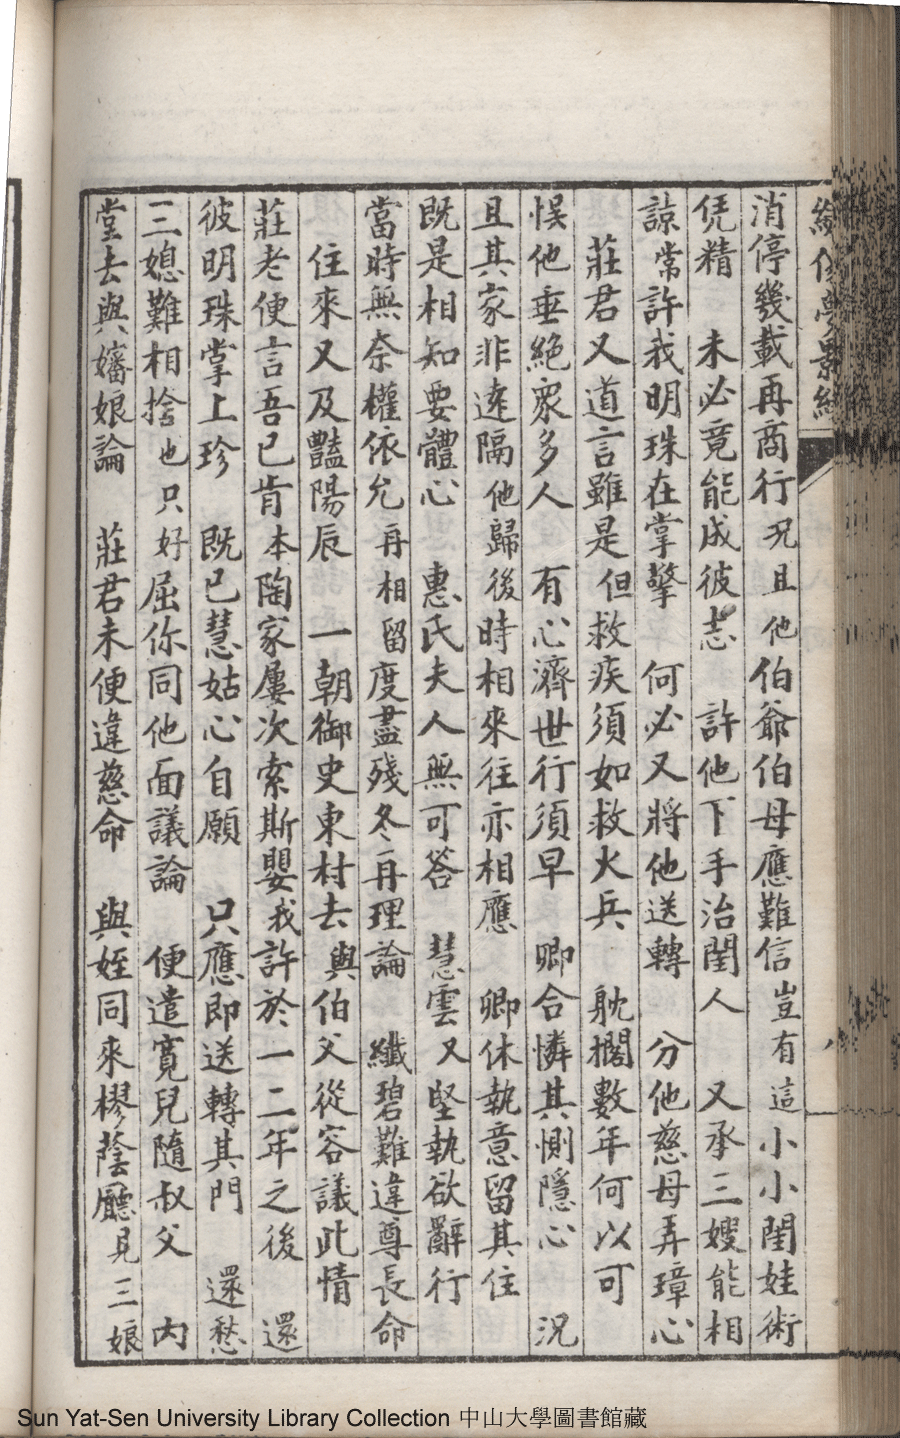 消停幾載再商行況且他伯爺伯母應難信豈有這小小閨娃術
凭精　未必竟能成彼志　許他下手治閨人　又承三嫂能相
諒常許我明珠在掌擎　何必又將他送轉　分他慈母弄璋心
莊君又道言雖是但救疾須如救火兵　躭擱數年何以可
悮他垂絕眾多人　有心濟世行須早　卿合憐其惻隱心　況
且其家非遠隔他歸後時相來往亦相應　卿休執意留其住
既是相知要體心　惠氏夫人無可答　慧雲又堅執欲辭行
當時無奈權依允再相留度盡殘冬再理論　纖碧難違尊長命
住來又及豔陽辰　一朝御史東村去與伯父從容議此情
莊老便言吾已肯本陶家屢次索斯嬰我許於一二年之後　還
彼明珠掌上珍　既已慧姑心自願　只應即送轉其門　還愁
三媳難相捨也只好屈你同他面議論　便遣寬兒隨叔父　內
堂去與嬸娘論　莊君未便違慈命　與姪同來樛蔭廳見三娘
八
Sun Yat-Sen University Library Collection 中山大學圖書館藏